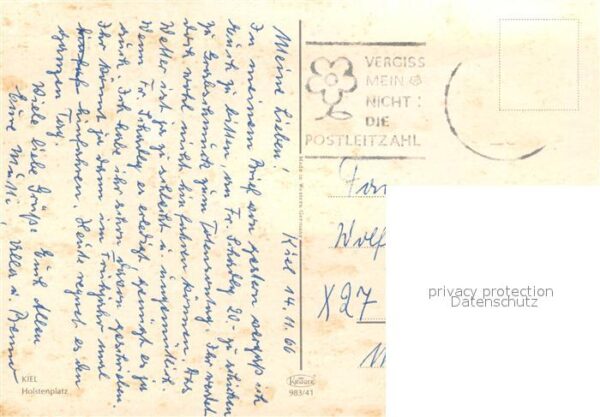 Kiel 14.11.66
Meine Lieben!
In meinem Brief von gestern vergaß ich
Euch zu bitten, um Fr. 20.- zu schicken
zu zum Totensonntag. Ihr werdet
doch wohl nicht hin fahren können. Das
Wetter ist ja zu schlecht u. ungemütlich.
Wenn Fr. es erledigt, genügt es ja
auch. Ich habe ihr schon davon geschrieben.
Ihr könnt ja dann im Frühjahr mal
hinfahren. Heute regnet es den
ganzen Tag.
Viele liebe Grüße Euch allen
Eure Mutti, u.
VERGISS
MEIN
NICHT:
DIE
POSTLEITZAHL
Fam
Wolf
X27
privacy protection
Datenschutz
KIEL
Holstenplatz
Krüger
983/41
Made in Western Germany